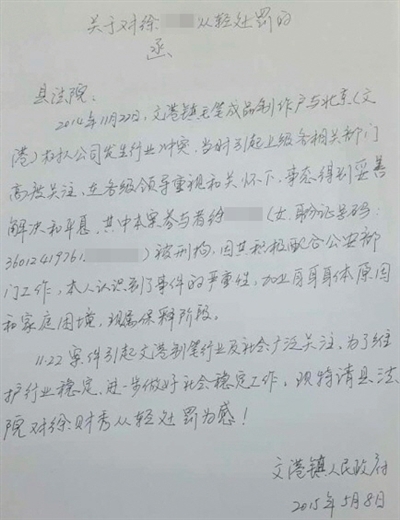 关于对徐 从轻处罚的
函
县法院：
2014年11月22日，文港镇毛笔成品制作户与北京（文
港）拍拍公司发生行业冲突，当时引起上级各相关部门
高度关注，在各级领导重视和关怀下，事态得到妥善
解决和平息，其中本案参与者徐 （女，身份证号码：
36012419761 ）被刑拘，因其积极配合公安部
门工作，本人认识到了事件的严重性，加业自身身体原因
和家庭困境，现属保释阶段。
11.22案件引起文港制笔行业及社会广泛关注，为了维
护行业稳定，进一步做好社会稳定工作，现特请县法
院对徐财秀从轻处罚为感！
文港镇人民政府
2015年5月8日